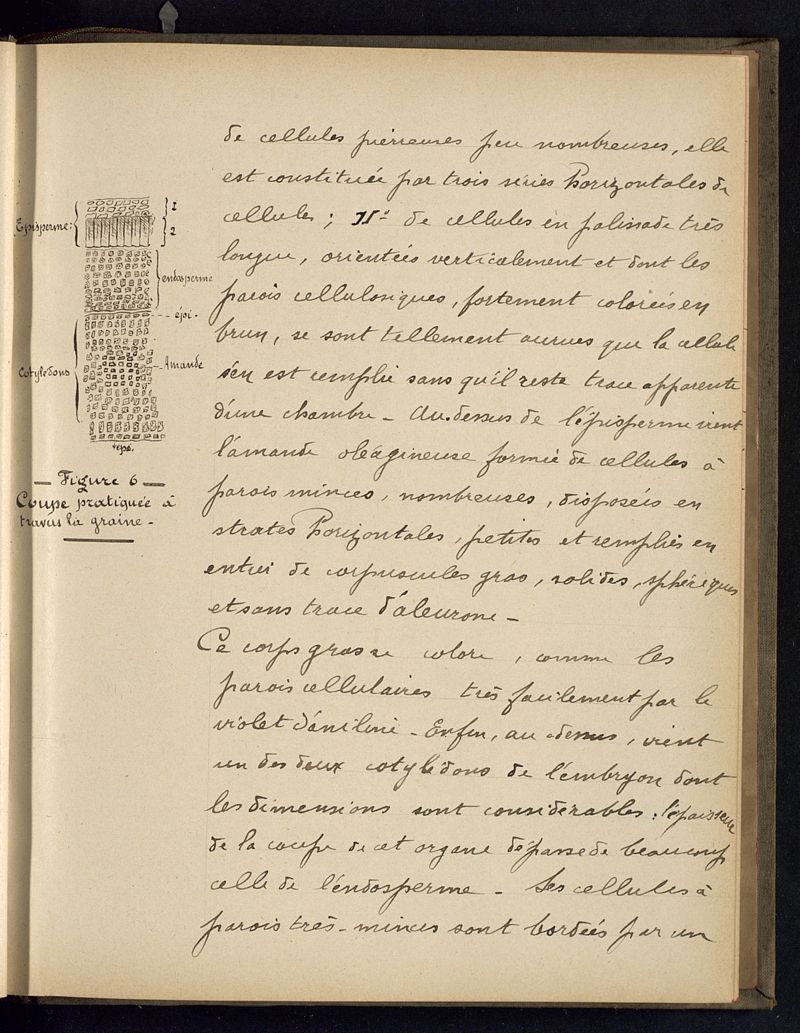 de cellules pierreuses peu nombreuses, elle
est constituée par trois séries horizontales de
cellules; II° de cellules en palissade très
longue, orientées verticalement et dont les
parois cellulosiques, fortement colorées en
brun, se sont tellement accrues que la cellule
s'en est remplie sans qu'il reste trace apparente
d'une chambre - Au-dessus de l'épisperme vient
l'amande oléagineuse formée de cellules à
parois minces, nombreuses, disposées en
strates horizontales, petites et remplies en
entier de corpuscules gras, solides, sphériques
et sans trace d'aleurone -
Ce corps gras se colore, comme les
parois cellulaires très facilement par le
violet d'aniline - Enfin, au dessus, vient
un des deux cotylédons de l'embryon dont
les dimensions sont considérables: l'épaisseur
de la coupe de cet organe dépasse de beaucoup
celle de l'endosperme - Les cellules à
parois très-minces sont bordées par un
Episperme:
1
2
endosperme
épi.
Cotylédons
Amande
- Figure 6 -
Coupe pratiquée à
travers la graine -